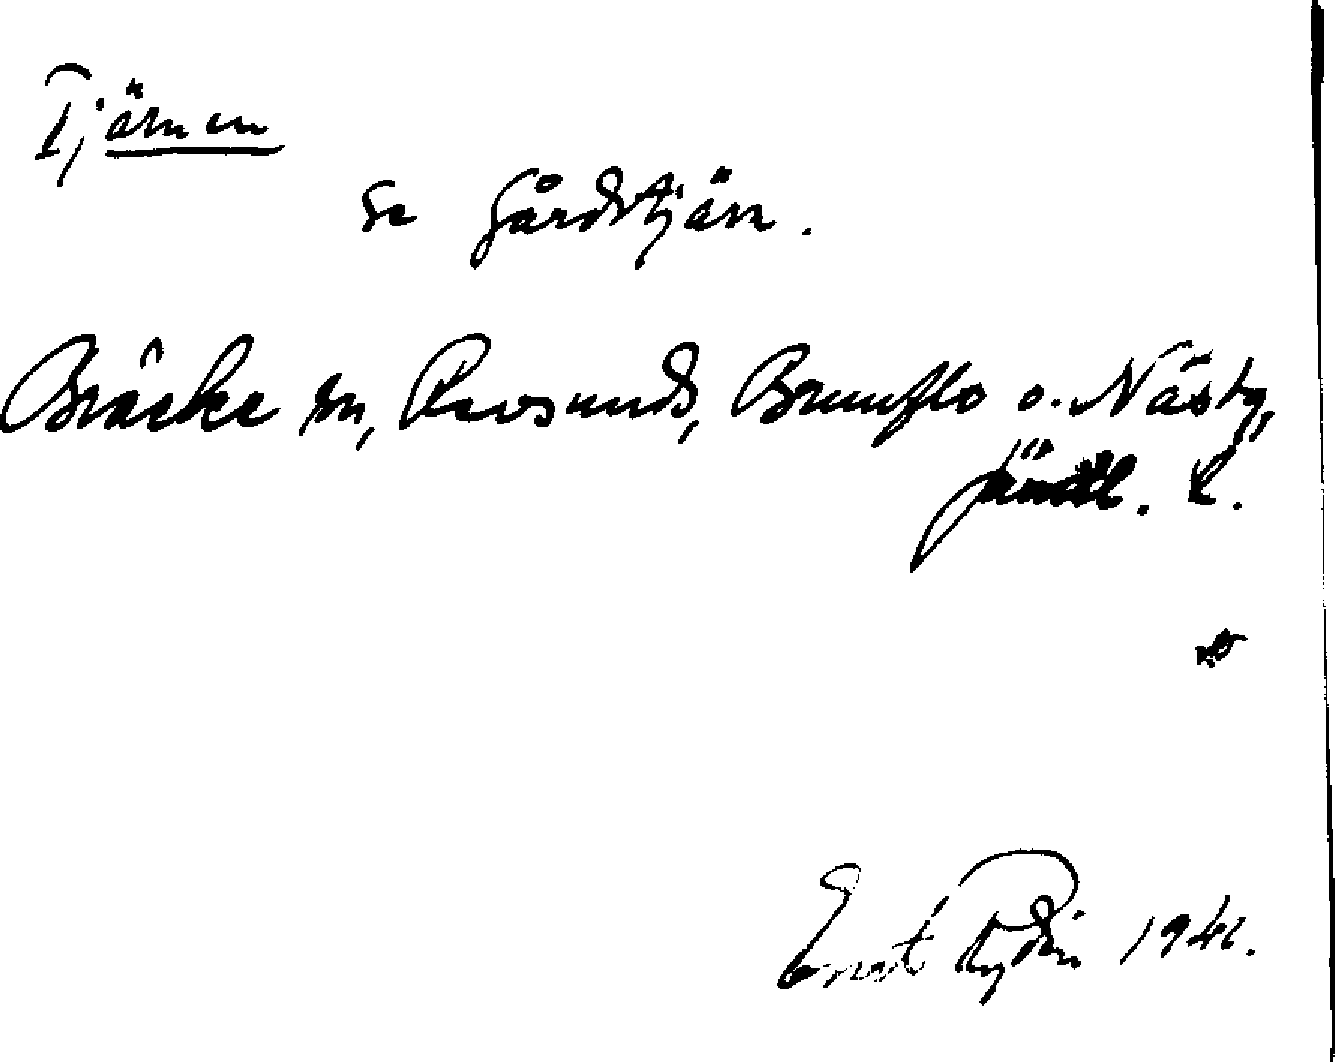 Tjärnen
se Gårdstjärn.
Bräcke sn, Revsunds, Brunflo o. Näs tg,
Jämtl. L.
Ernst Rydin 1941.